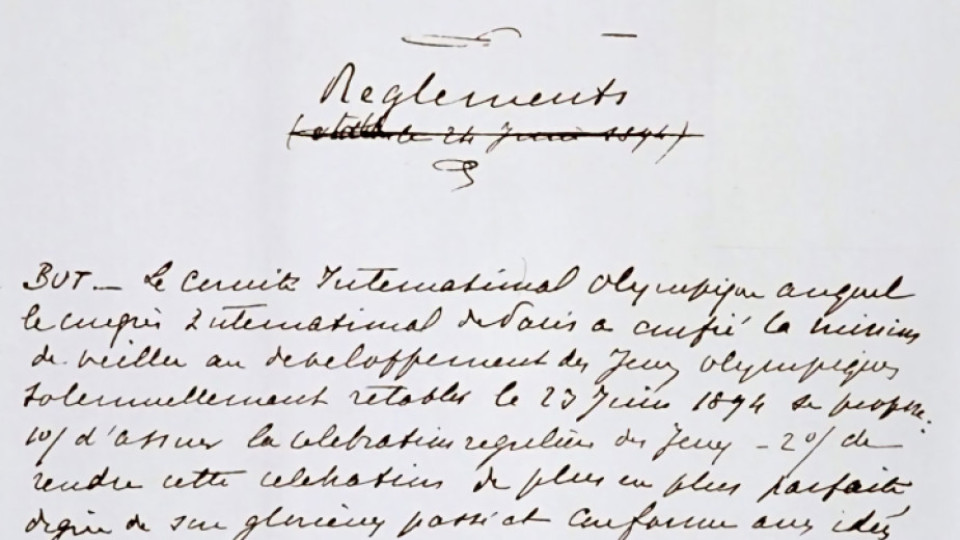 Reglements
(etabli le 24 Juin 1894)
BUT — Le Comité International Olympique auquel
le congrès International de Paris a confié la mission
de veiller au developpement des Jeux Olympiques
solennellement retablis le 23 Juin 1894 se propose:
1o/ d'assurer la celebration reguliere des Jeux — 2o/ de
rendre cette celebration de plus en plus parfaite
digne de son glorieux passé et conforme aux idées